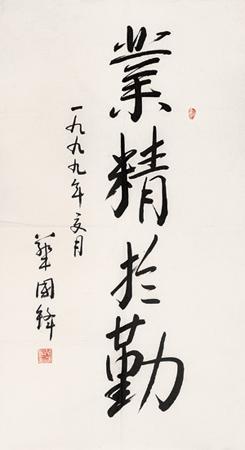 業精於勤
一九九九年月
華國鋒